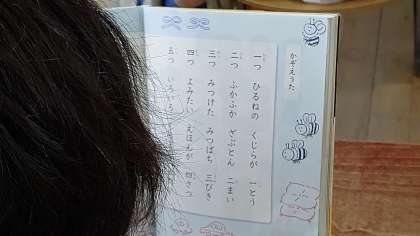 かぞえうた
一つ ひるねの くじらが 一とう
二つ ふかふか ざぶとん 二まい
三つ みつけた みつばち 三びき
四つ よみたい えほんが 四さつ
五つ いろいろ